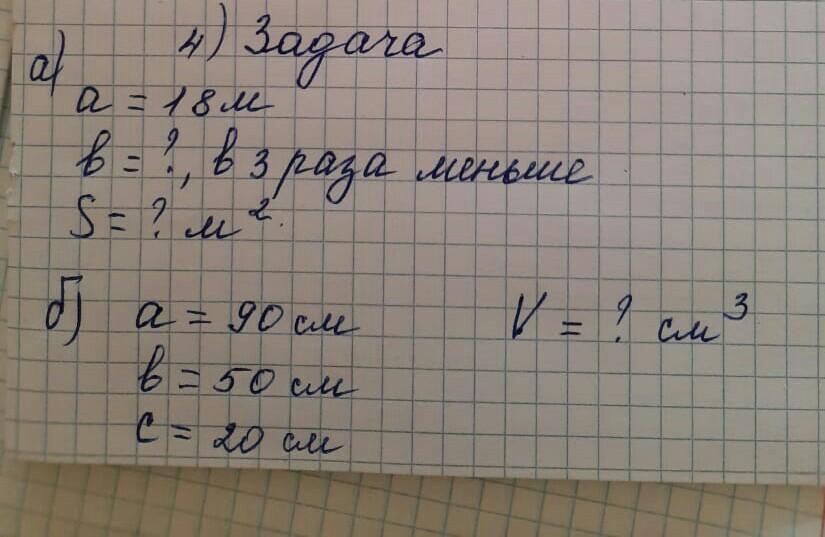 4) Задача
а)
a = 18 м
b = ?, в 3 раза меньше
S = ? м².
б) a = 90 см V = ? см³
b = 50 см
c = 20 см